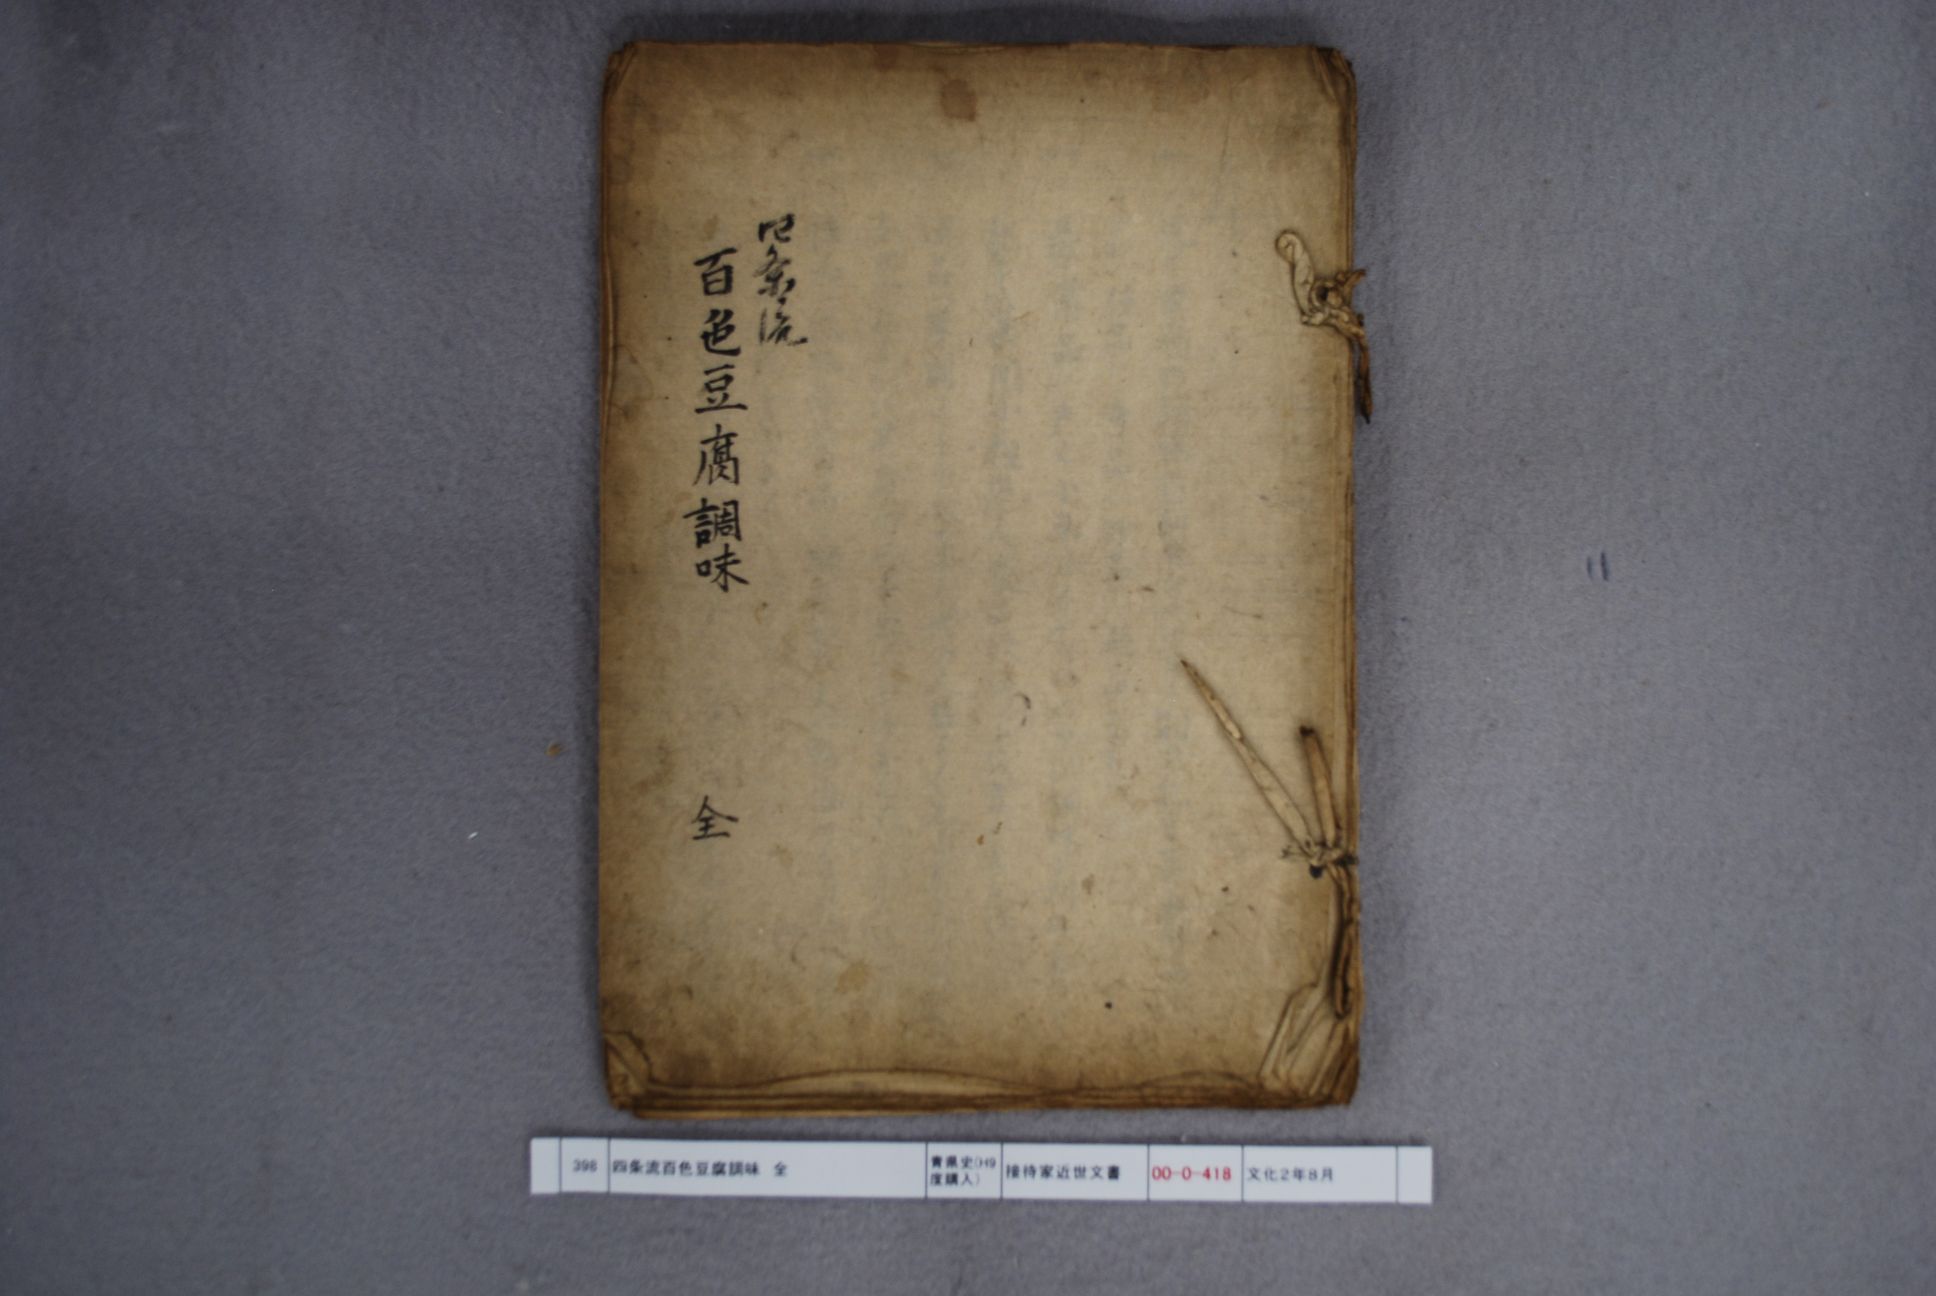 四条流
百色豆腐調味
全
398 四条流百色豆腐調味 全 青県史(H9度購入) 接待家近世文書 00-0-418 文化2年8月